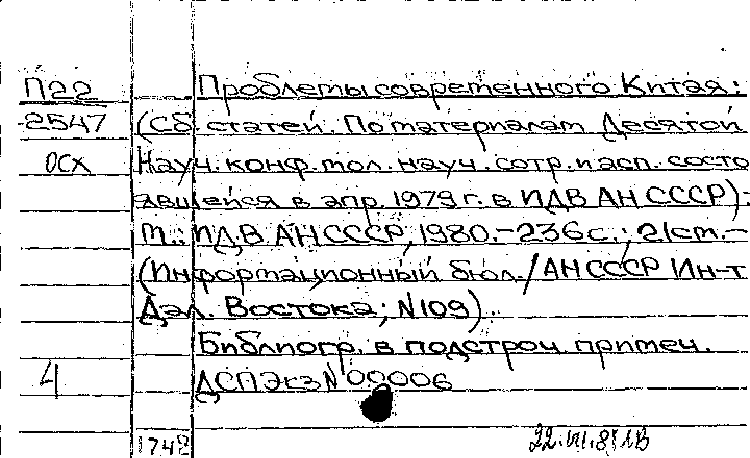 П22 Проблемы современного Китая:
2547 (Сб. статей. По материалам Десятой
осх Науч. конф. мол. науч. сотр. и асп. состо
явшейся в апр. 1979 г. в ИДВ АН СССР):
М.: ИДВ АН СССР, 1980.-236с.; 21см.-
(Информационный бюл./АН СССР Ин-т
Дал. Востока; N109).
Библиогр. в подстроч. примеч.
4 ДСП Экз N 00006
1742 22.VII.81